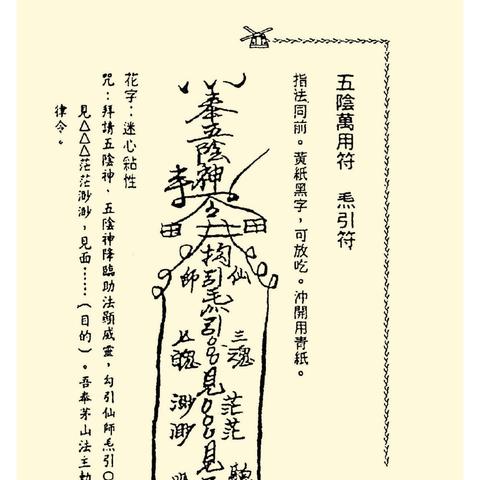 五陰萬用符　炁引符
指法同前。黃紙黑字，可放吃。沖開用青紙。
奉五陰神
李
田
田
仙
師
三魂
七魄
茫茫
渺渺
見
見
花字：迷心粘性
咒：拜請五陰神、五陰神降臨助法顯威靈，勾引仙師炁引
見△△△茫茫渺渺，見面……（目的）。吾奉茅山法主
律令。